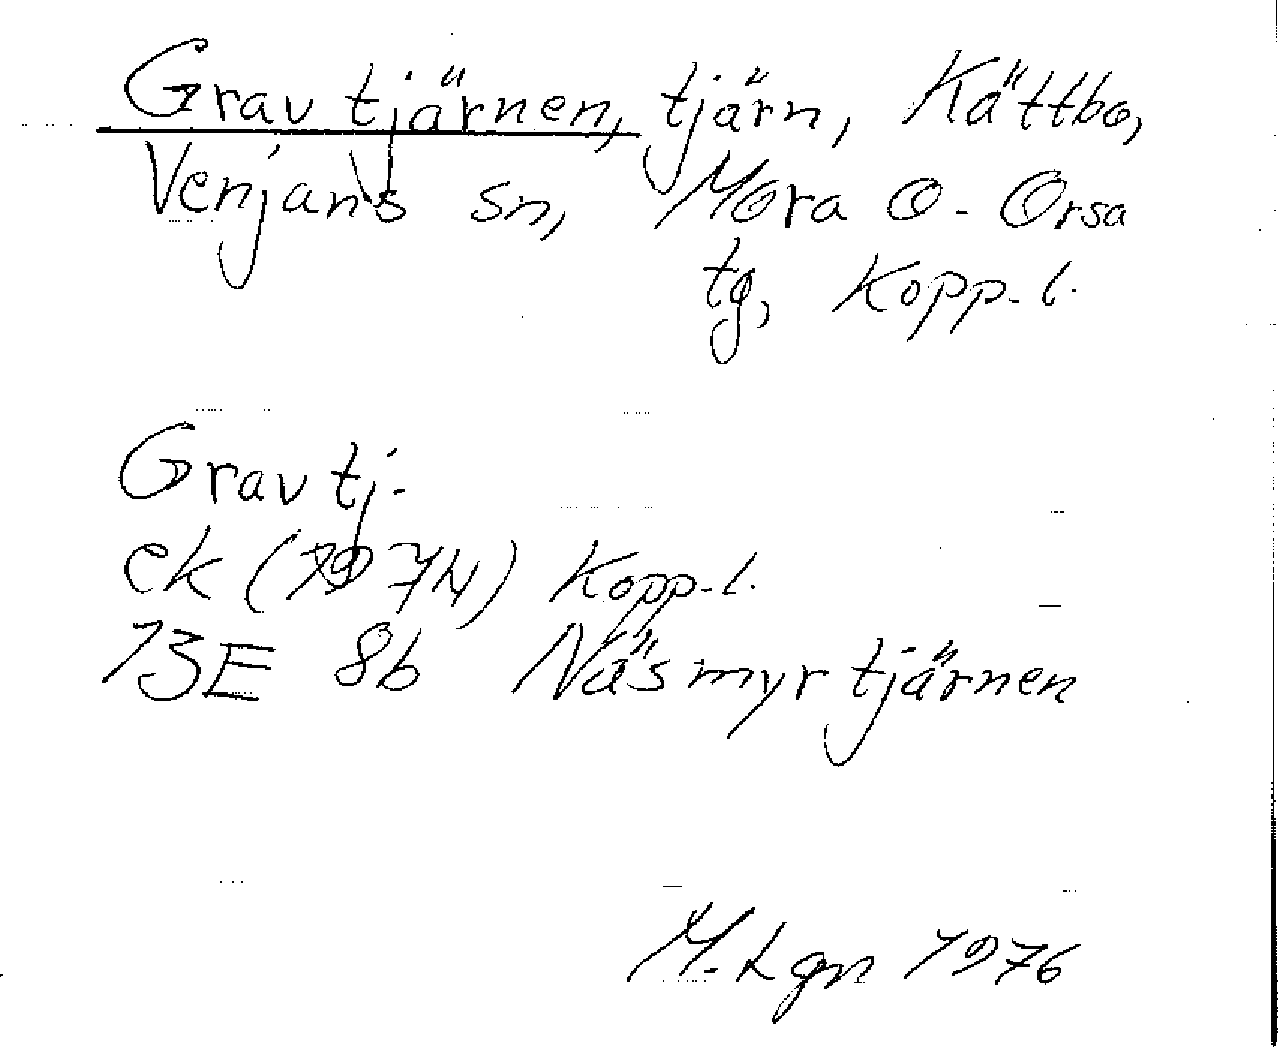 Gravtjärnen, tjärn, Kättbo,
Venjans sn, Mora o. Orsa
tg, Kopp. l.
Gravtj.
ek (1974) Kopp. l.
13E 8b Näsmyrtjärnen
M. Lgn 1976